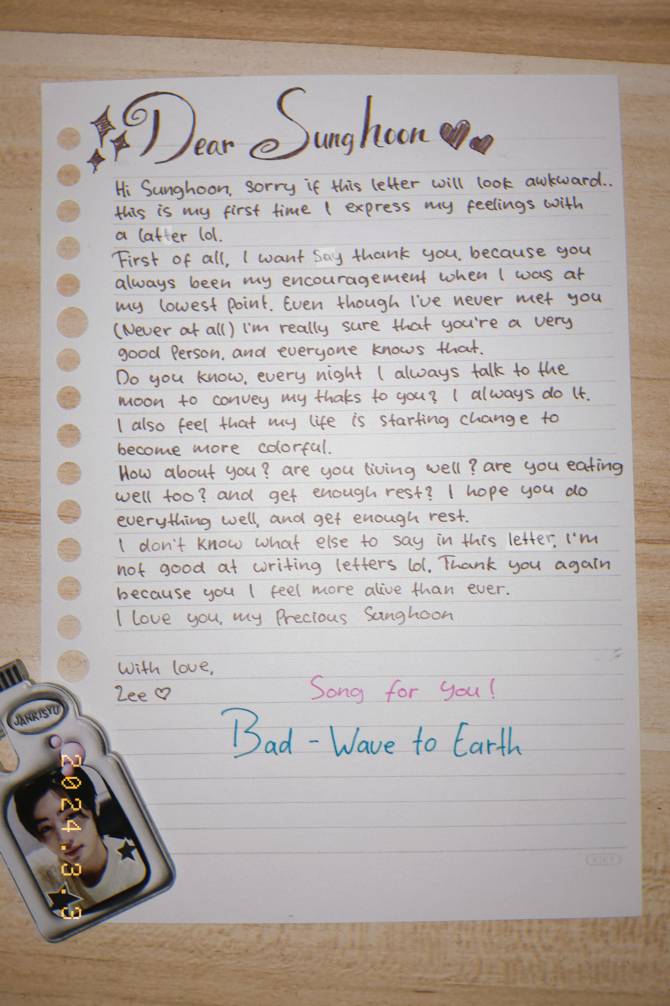 Dear Sunghoon
Hi Sunghoon, sorry if this letter will look awkward..
this is my first time I express my feelings with
a latter lol.
First of all, I want Say thank you, because you
always been my encouragement when I was at
my lowest point. Even though I've never met you
(Never at all) I'm really sure that you're a very
good Person, and everyone knows that.
Do you know, every night I always talk to the
moon to convey my thaks to you? I always do it.
I also feel that my life is starting change to
become more colorful.
How about you? are you living well? are you eating
well too? and get enough rest? I hope you do
everything well, and get enough rest.
I don't know what else to say in this letter, I'm
not good at writing letters lol. Thank you again
because you I feel more alive than ever.
I love you, my Precious Sunghoon
With love,
Zee
Song for you!
Bad - Wave to Earth
JANKISYU
2024.3.3